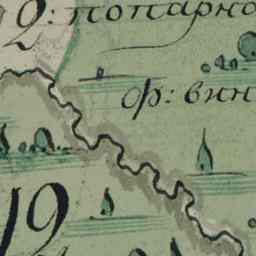 2: попарно
ф: вин
19